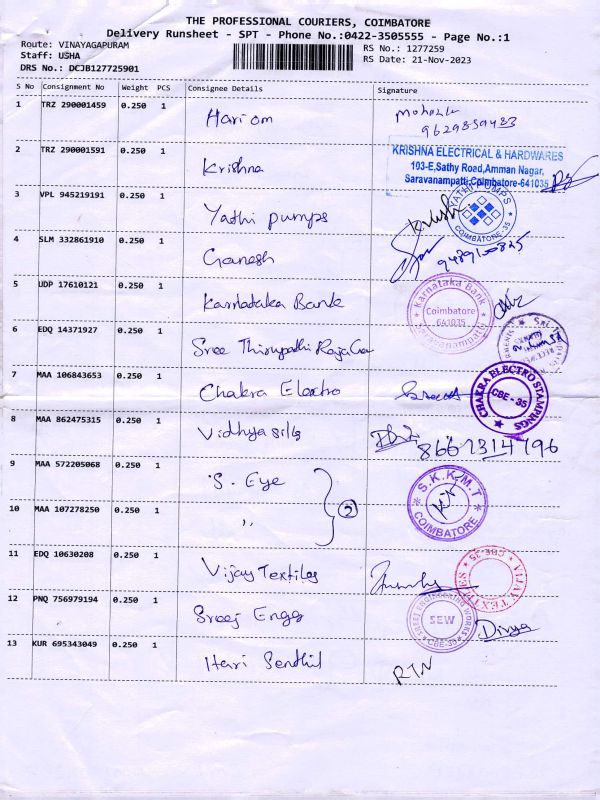 THE PROFESSIONAL COURIERS, COIMBATORE
Delivery Runsheet - SPT - Phone No.:0422-3505555 - Page No.:1
Route: VINAYAGAPURAM
RS No.: 1277259
Staff: USHA
RS Date: 21-Nov-2023
DRS No.: DCJB127725901
S No Consignment No Weight PCS Consignee Details Signature
1 TRZ 290001459 0.250 1 Hari om
2 TRZ 290001591 0.250 1 Krishna
KRISHNA ELECTRICAL & HARDWARES
103-E,Sathy Road,Amman Nagar,
Saravanampatti,Coimbatore-641035
3 VPL 945219191 0.250 1 Yathi pumps
YATHI PUMPS
COIMBATORE - 35
4 SLM 332861910 0.250 1 Ganesh
5 UDP 17610121 0.250 1 Karnataka Bank
Karnataka Bank
Coimbatore
641035
Saravanampatti
6 EDQ 14371927 0.250 1 Sree Thirupathi
7 MAA 106843653 0.250 1 Chakra Electro
CHAKRA ELECTRO STAMPINGS
CBE - 35
8 MAA 862475315 0.250 1 Vidhya silks
8667314796
9 MAA 572205068 0.250 1 S. Eye
10 MAA 107278250 0.250 1 "
2
S.K.K.M.T
COIMBATORE
11 EDQ 10630208 0.250 1 Vijay Textiles
VIJAY TEXTILES
CBE-35
12 PNQ 756979194 0.250 1 Sreej Engg
SEW
CBE-35
Divya
13 KUR 695343049 0.250 1 Hari Senthil
RTN